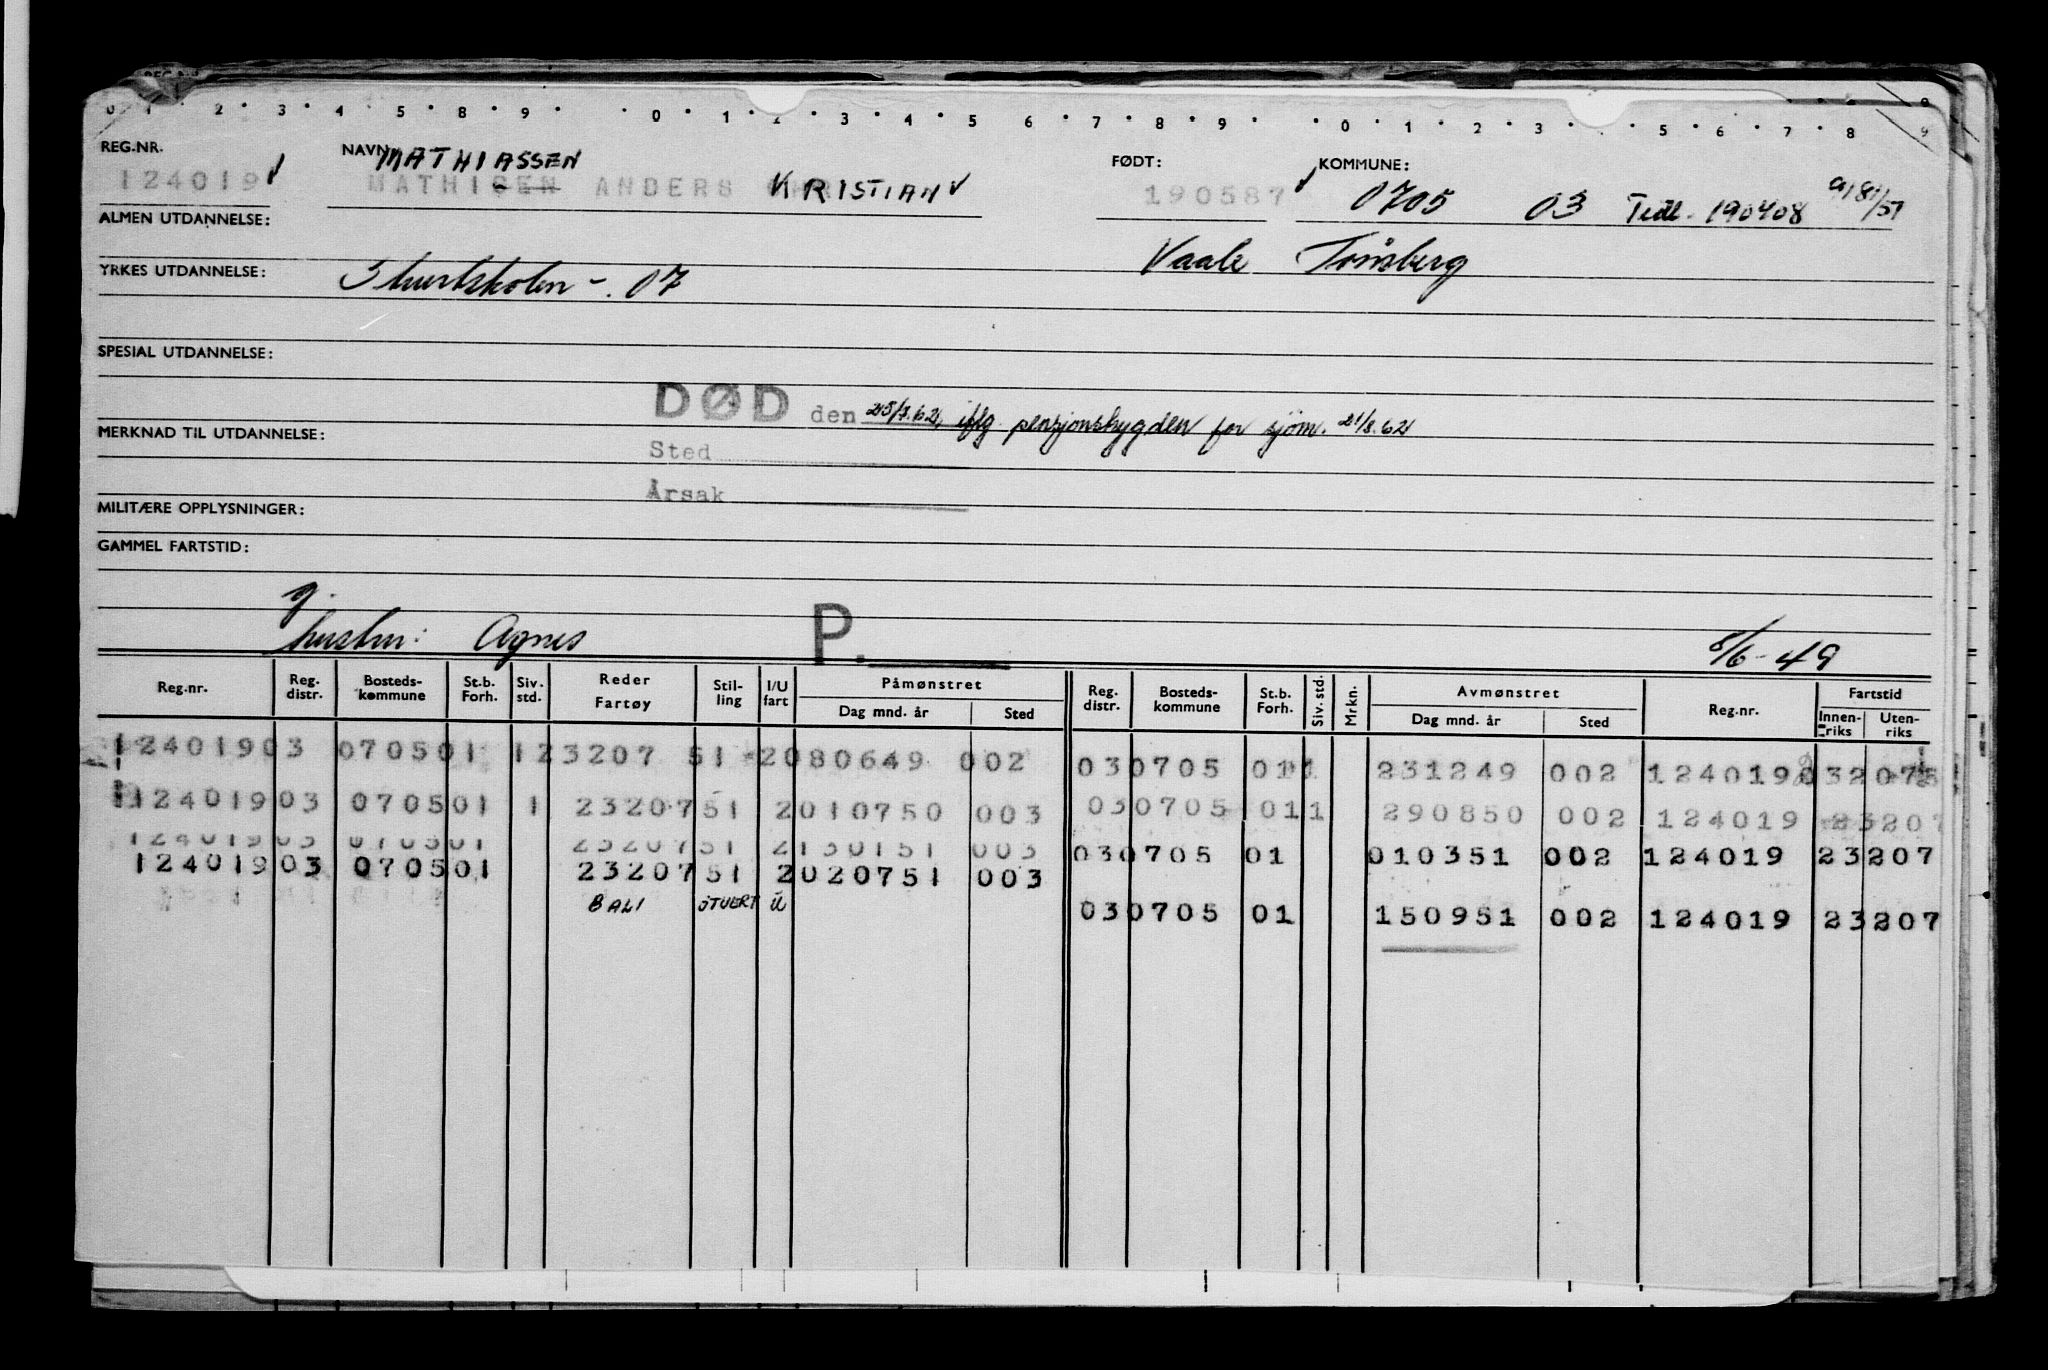 0 1 2 3 4 5 8 9 0 1 2 3 4 5 6 7 8 9 0 1 2 3 5 6 7 8 9
REG.NR. NAVN: MATHIASSEN FØDT: KOMMUNE:
124019 MATHISEN ANDERS KRISTIAN 190587 0705 03 Tidl. 190408
ALMEN UTDANNELSE:
Vaale Tønsberg
YRKES UTDANNELSE: Stuertskolen -. 07
SPESIAL UTDANNELSE:
DØD den 25/7.62, iflg pensjonstrygden for sjøm. 21/8.62
MERKNAD TIL UTDANNELSE:
Sted
Årsak
MILITÆRE OPPLYSNINGER:
GAMMEL FARTSTID:
g.
hustru: Agnes P. 8/6-49
Reg.nr. Reg. distr. Bosteds-kommune St.b. Forh. Siv. std. Reder Fartøy Stil-ling I/U fart Påmønstret Dag mnd. år Sted Reg. distr. Bosteds-kommune St.b. Forh. Siv. std. Mrkn. Avmønstret Dag mnd. år Sted Reg.nr. Fartstid Innen-riks Uten-riks
124019 03 0705 01 1 23207 51 2 080649 002 03 0705 01 1 231249 002 124019 23207
124019 03 0705 01 1 23207 51 2 010750 003 03 0705 01 1 290850 002 124019 23207
124019 03 0705 01 23207 51 2 130151 003 03 0705 01 010351 002 124019 23207
124019 03 0705 01 23207 51 2 020751 003
BALI STUERT U 03 0705 01 150951 002 124019 23207